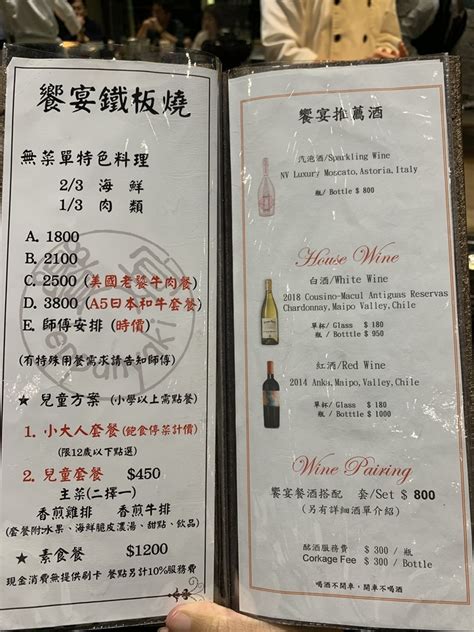 饗宴鐵板燒
無菜單特色料理
2/3 海鮮
1/3 肉類
A. 1800
B. 2100
C. 2500 (美國老饕牛肉餐)
D. 3800 (A5日本和牛套餐)
E. 師傅安排 (時價)
(有特殊用餐需求請告知師傅)
★ 兒童方案 (小學以上需點餐)
1. 小大人套餐 (飽食停菜計價)
(限12歲以下點選)
2. 兒童套餐 $450
主菜(二擇一)
香煎雞排 香煎牛排
(套餐附:水果、海鮮脆皮濃湯、甜點、飲品)
★ 素食餐 $1200
現金消費無提供刷卡 餐點另計10%服務費
饗宴推薦酒
汽泡酒/Sparkling Wine
NV Luxury Moscato,Astoria,Italy
瓶/ Bottle $ 800
House Wine
白酒/White Wine
2018 Cousino-Macul Antiguas Reservas
Chardonnay,Maipo Valley,Chile
單杯/ Glass $ 180
瓶 / Botttle $ 950
紅酒/Red Wine
2014 Anka,Maipo,Valley,Chile
單杯/ Glass $ 180
瓶 / Botttle $ 1000
Wine Pairing
饗宴餐酒搭配 套/Set $ 800
(另有詳細酒單介紹)
酩酒服務費 $ 300 / 瓶
Corkage Fee $ 300 / Bottle
喝酒不開車,開車不喝酒